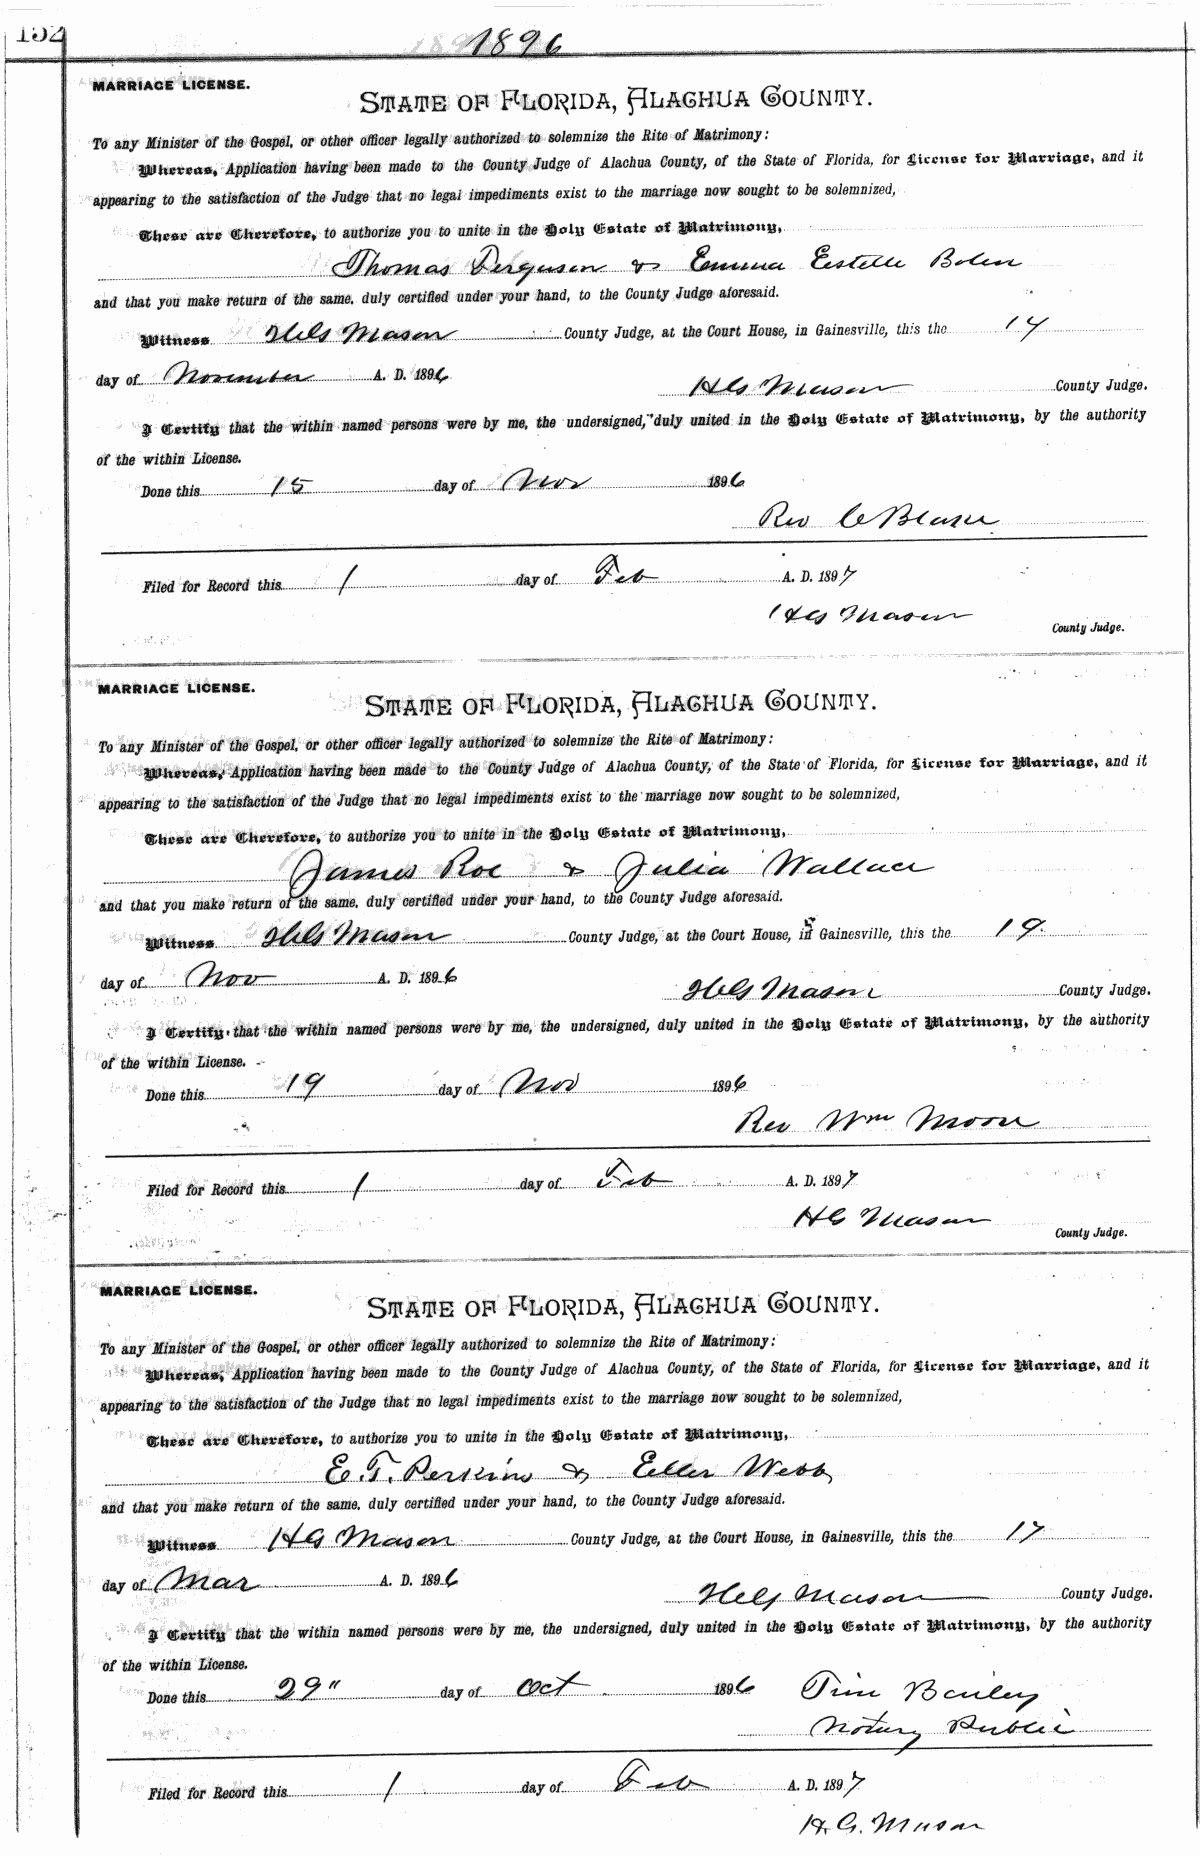 152
1896
MARRIAGE LICENSE.
STATE OF FLORIDA, ALACHUA COUNTY.
To any Minister of the Gospel, or other officer legally authorized to solemnize the Rite of Matrimony:
Whereas, Application having been made to the County Judge of Alachua County, of the State of Florida, for License for Marriage, and it
appearing to the satisfaction of the Judge that no legal impediments exist to the marriage now sought to be solemnized,
These are Therefore, to authorize you to unite in the Holy Estate of Matrimony,
Thomas Ferguson & Emma Eestelle Bolen
and that you make return of the same, duly certified under your hand, to the County Judge aforesaid.
Witness HG Mason County Judge, at the Court House, in Gainesville, this the 14
day of November A. D. 1896
HG Mason County Judge.
I Certify that the within named persons were by me, the undersigned, duly united in the Holy Estate of Matrimony, by the authority
of the within License.
Done this 15 day of Nov 1896
Rev C Blake
Filed for Record this 1 day of Feb A. D. 1897
HG Mason
County Judge.
MARRIAGE LICENSE.
STATE OF FLORIDA, ALACHUA COUNTY.
To any Minister of the Gospel, or other officer legally authorized to solemnize the Rite of Matrimony:
Whereas, Application having been made to the County Judge of Alachua County, of the State of Florida, for License for Marriage, and it
appearing to the satisfaction of the Judge that no legal impediments exist to the marriage now sought to be solemnized,
These are Therefore, to authorize you to unite in the Holy Estate of Matrimony,
James Roe & Julia Wallace
and that you make return of the same, duly certified under your hand, to the County Judge aforesaid.
Witness HG Mason County Judge, at the Court House, in Gainesville, this the 19
day of Nov A. D. 1896
HG Mason County Judge.
I Certify that the within named persons were by me, the undersigned, duly united in the Holy Estate of Matrimony, by the authority
of the within License.
Done this 19 day of Nov 1896
Rev Wm Moore
Filed for Record this 1 day of Feb A. D. 1897
HG Mason
County Judge.
MARRIAGE LICENSE.
STATE OF FLORIDA, ALACHUA COUNTY.
To any Minister of the Gospel, or other officer legally authorized to solemnize the Rite of Matrimony:
Whereas, Application having been made to the County Judge of Alachua County, of the State of Florida, for License for Marriage, and it
appearing to the satisfaction of the Judge that no legal impediments exist to the marriage now sought to be solemnized,
These are Therefore, to authorize you to unite in the Holy Estate of Matrimony,
E. T. Perkins & Eller Webb
and that you make return of the same, duly certified under your hand, to the County Judge aforesaid.
Witness HG Mason County Judge, at the Court House, in Gainesville, this the 17
day of Mar A. D. 1896
HG Mason County Judge.
I Certify that the within named persons were by me, the undersigned, duly united in the Holy Estate of Matrimony, by the authority
of the within License.
Done this 29" day of Oct 1896 Tim Bailey
Notary Public
Filed for Record this 1 day of Feb A. D. 1897
H. G. Mason